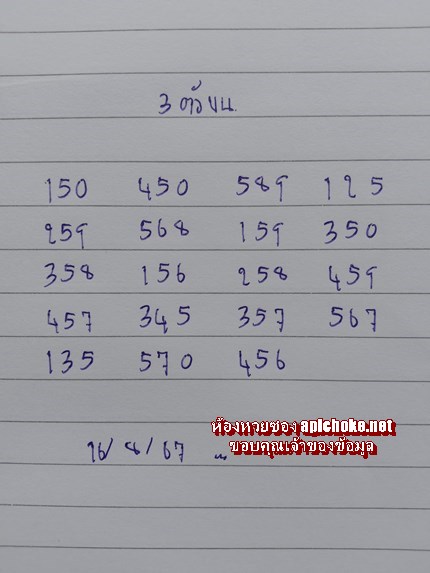 3 ตัวบน
150 450 589 125
259 568 159 350
358 156 258 459
457 345 357 567
135 570 456
16/8/67 ...
ห้องหวยซอง apichoke.net
ขอบคุณเจ้าของข้อมูล